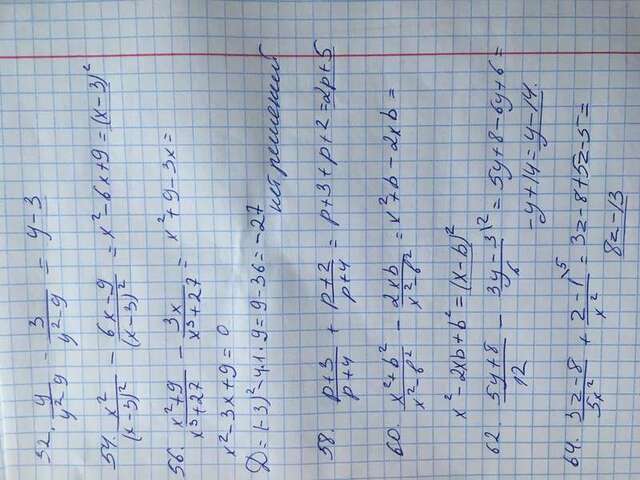 52. y/(y²-9) - 3/(y²-9) = y-3
54. x²/(x-3)² - (6x-9)/(x-3)² = x²-6x+9 = (x-3)²
56. (x²+9)/(x³+27) - 3x/(x³+27) = x²+9-3x =
x²-3x+9 = 0
Д = (-3)²-4·1·9 = 9-36 = -27
нет решений
58. (p+3)/(p+4) + (p+2)/(p+4) = p+3+p+2 = 2p+5
60. (x²+b²)/(x²-b²) - 2xb/(x²-b²) = x²+b-2xb =
x²-2xb+b² = (x-b)²
62. (5y+8)/12 - (3y-3)/6 \2 = 5y+8-6y+6 =
-y+14 = y-14.
64. (3z-8)/5x² + (z-1)/x² \5 = 3z-8+5z-5 =
8z-13